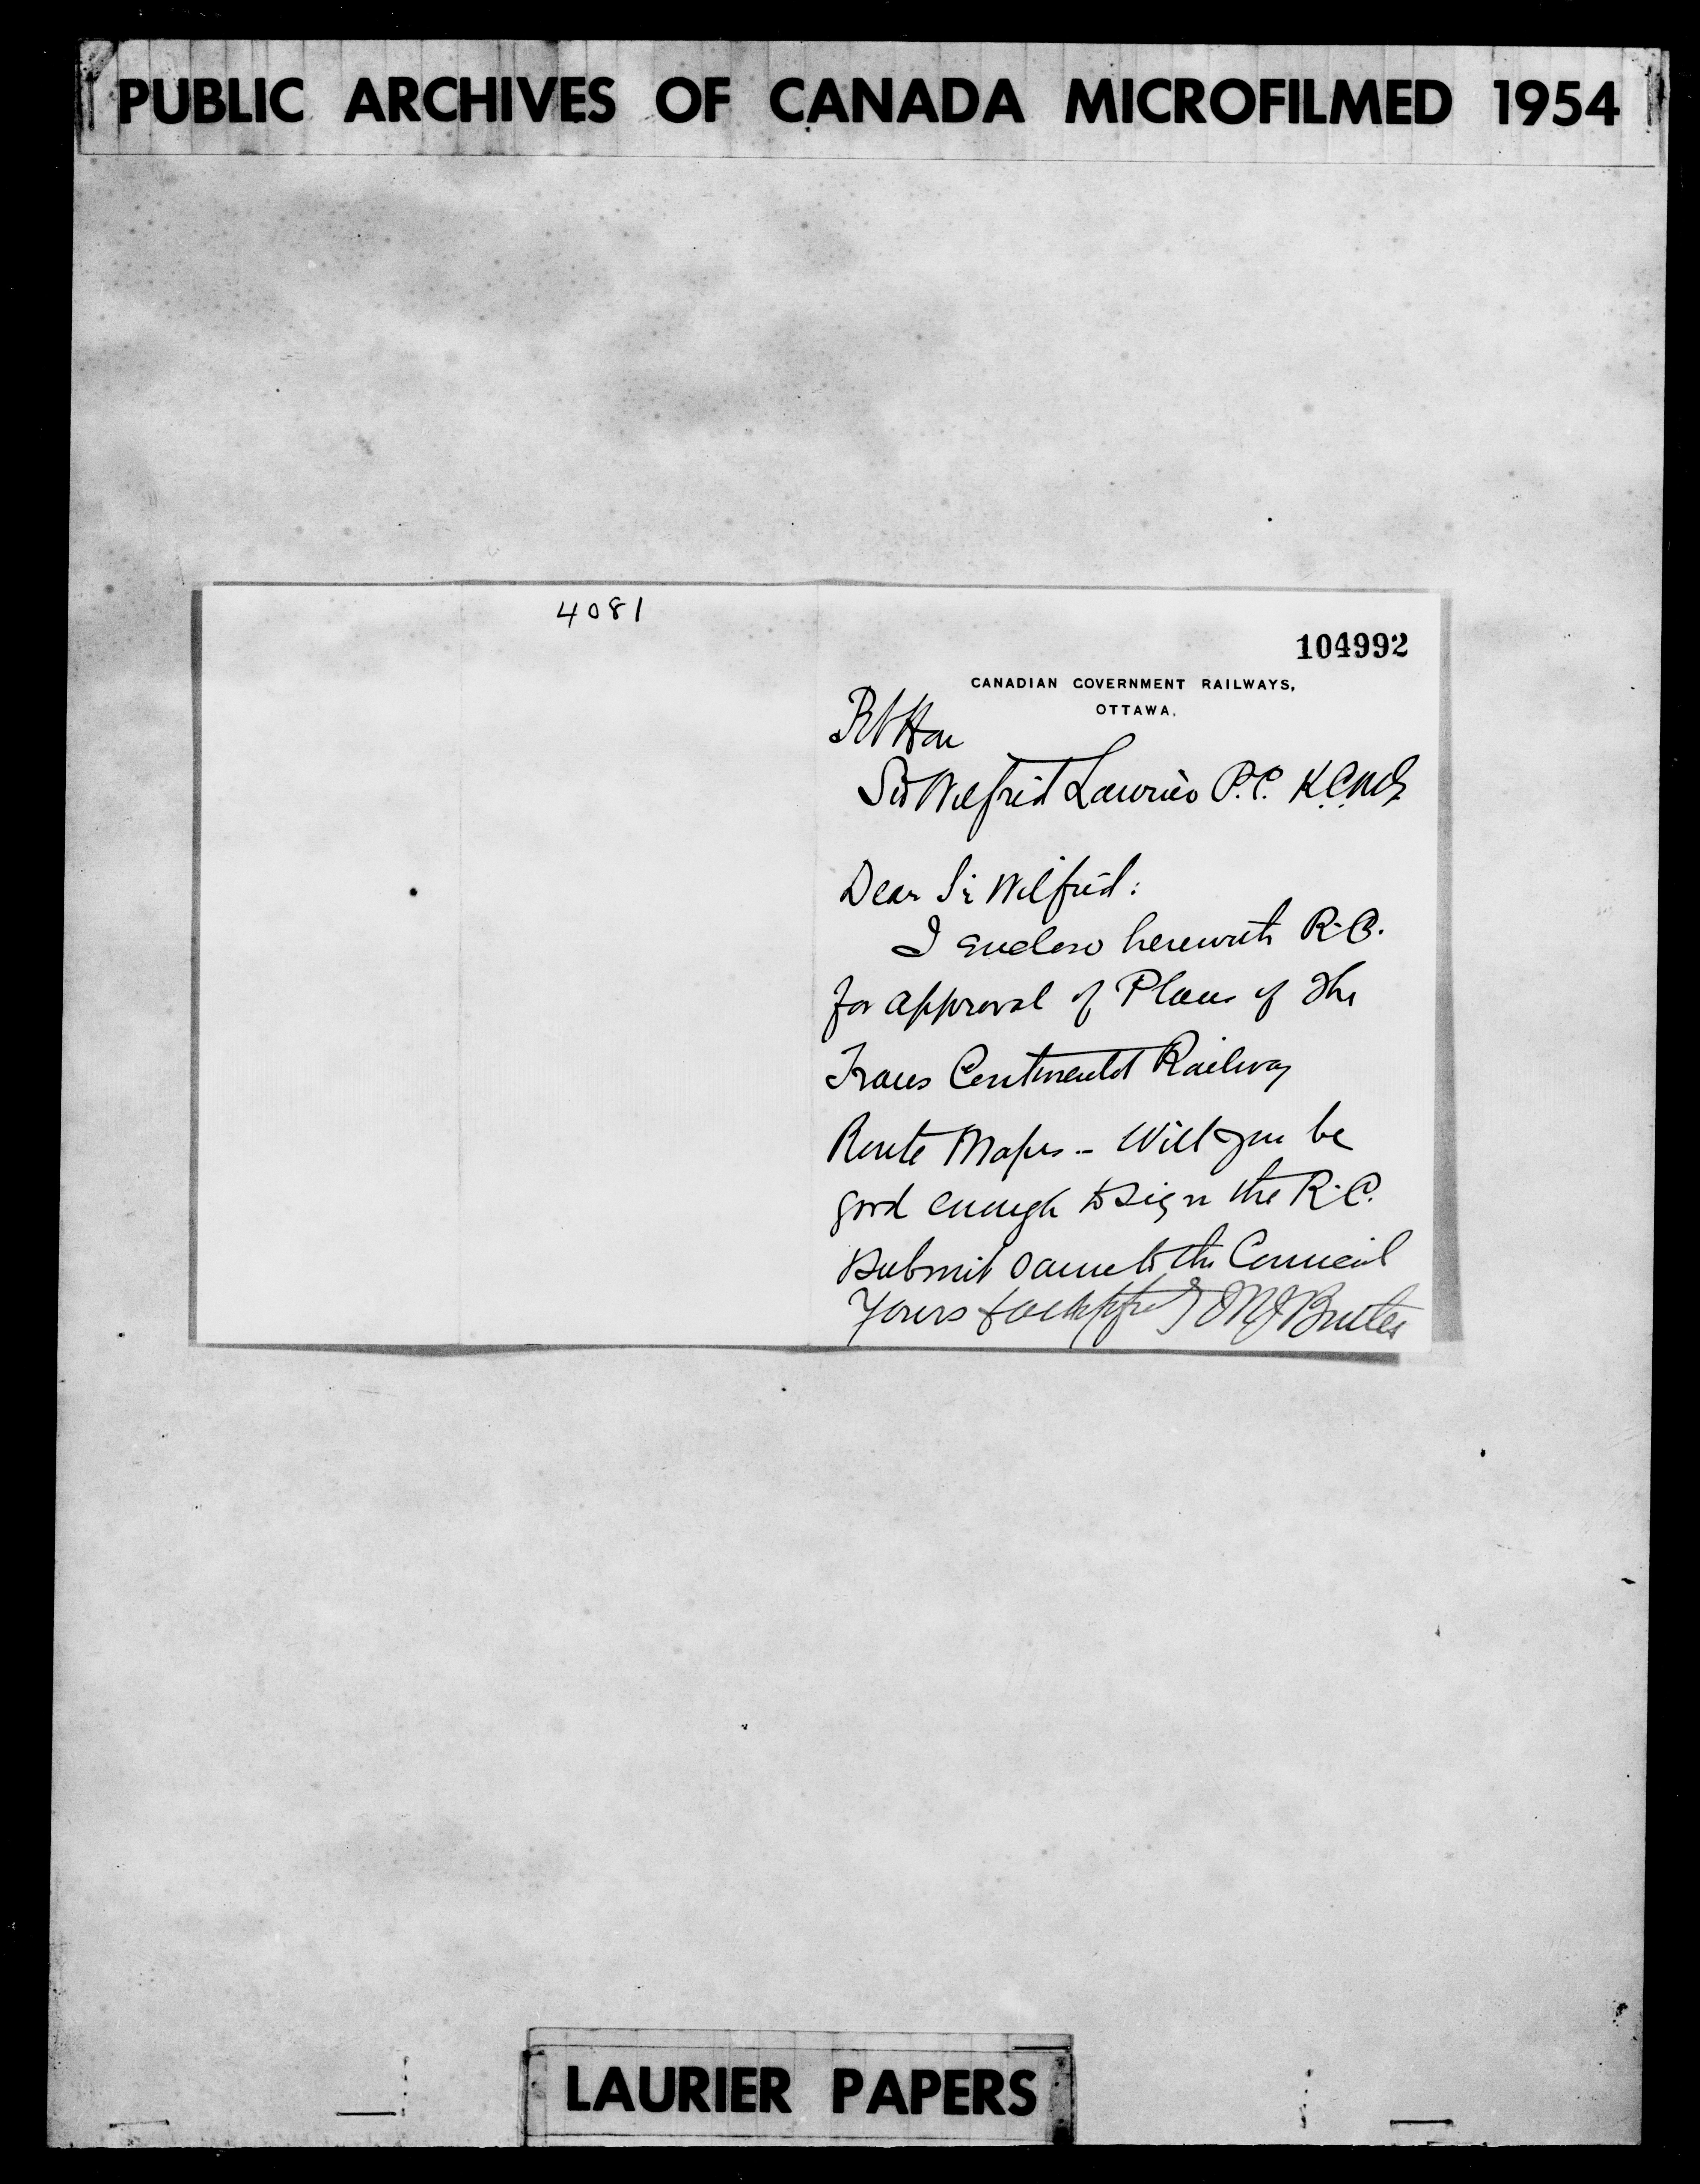 PUBLIC ARCHIVES OF CANADA MICROFILMED 1954
4081
104992
CANADIAN GOVERNMENT RAILWAYS,
OTTAWA.
Rt Hon
Sir Wilfrid Laurier P.C. K.C.M.G.
Dear Sir Wilfrid:
I enclose herewith R.C.
for approval of Plans of the
Trans Continental Railway
Route Maps - Will you be
good enough to sign the R.C.
submit same to the Council
Yours faithfully M J Butler
LAURIER PAPERS